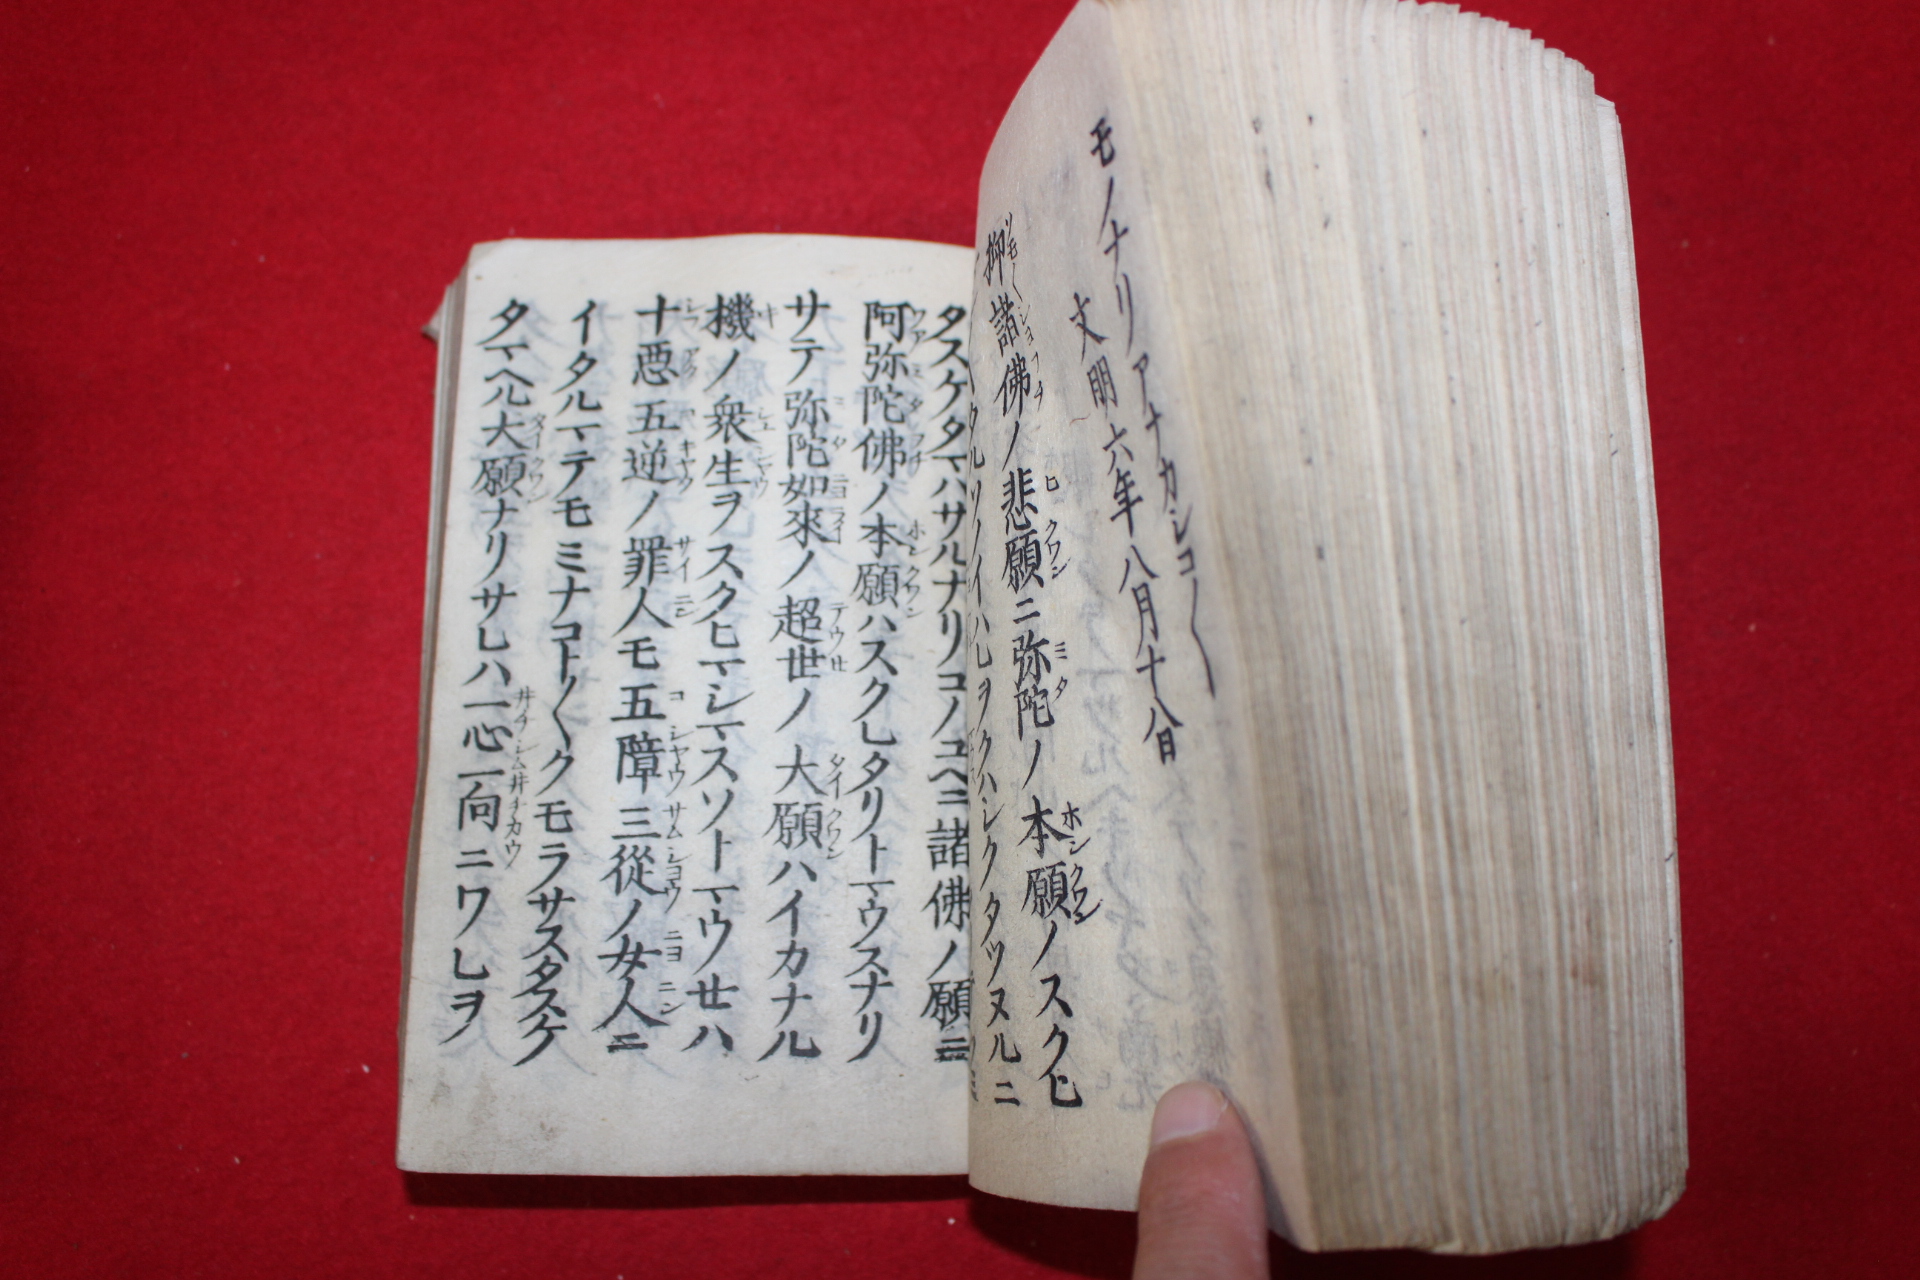 モノナリアナカシコ〱
文明六年八月十八日
抑諸佛ノ悲願ニ弥陀ノ本願ノスクレ
タスケタマハサルナリコノユヘニ諸佛ノ願ニ
阿弥陀佛ノ本願ハスクレタリトマウスナリ
サテ弥陀如來ノ超世ノ大願ハイカナル
機ノ衆生ヲスクヒマシマスソトマウセハ
十悪五逆ノ罪人モ五障三從ノ女人ニ
イタルマテモミナコト〱クモラサスタスケ
タマヘル大願ナリサレハ一心一向ニワレヲ